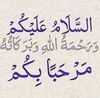 السَّلَامُ عَلَيْكُمْ
وَرَحْمَةُ اللهِ وَبَرَكَاتُهُ
مَرْحَبًا بِكُمْ